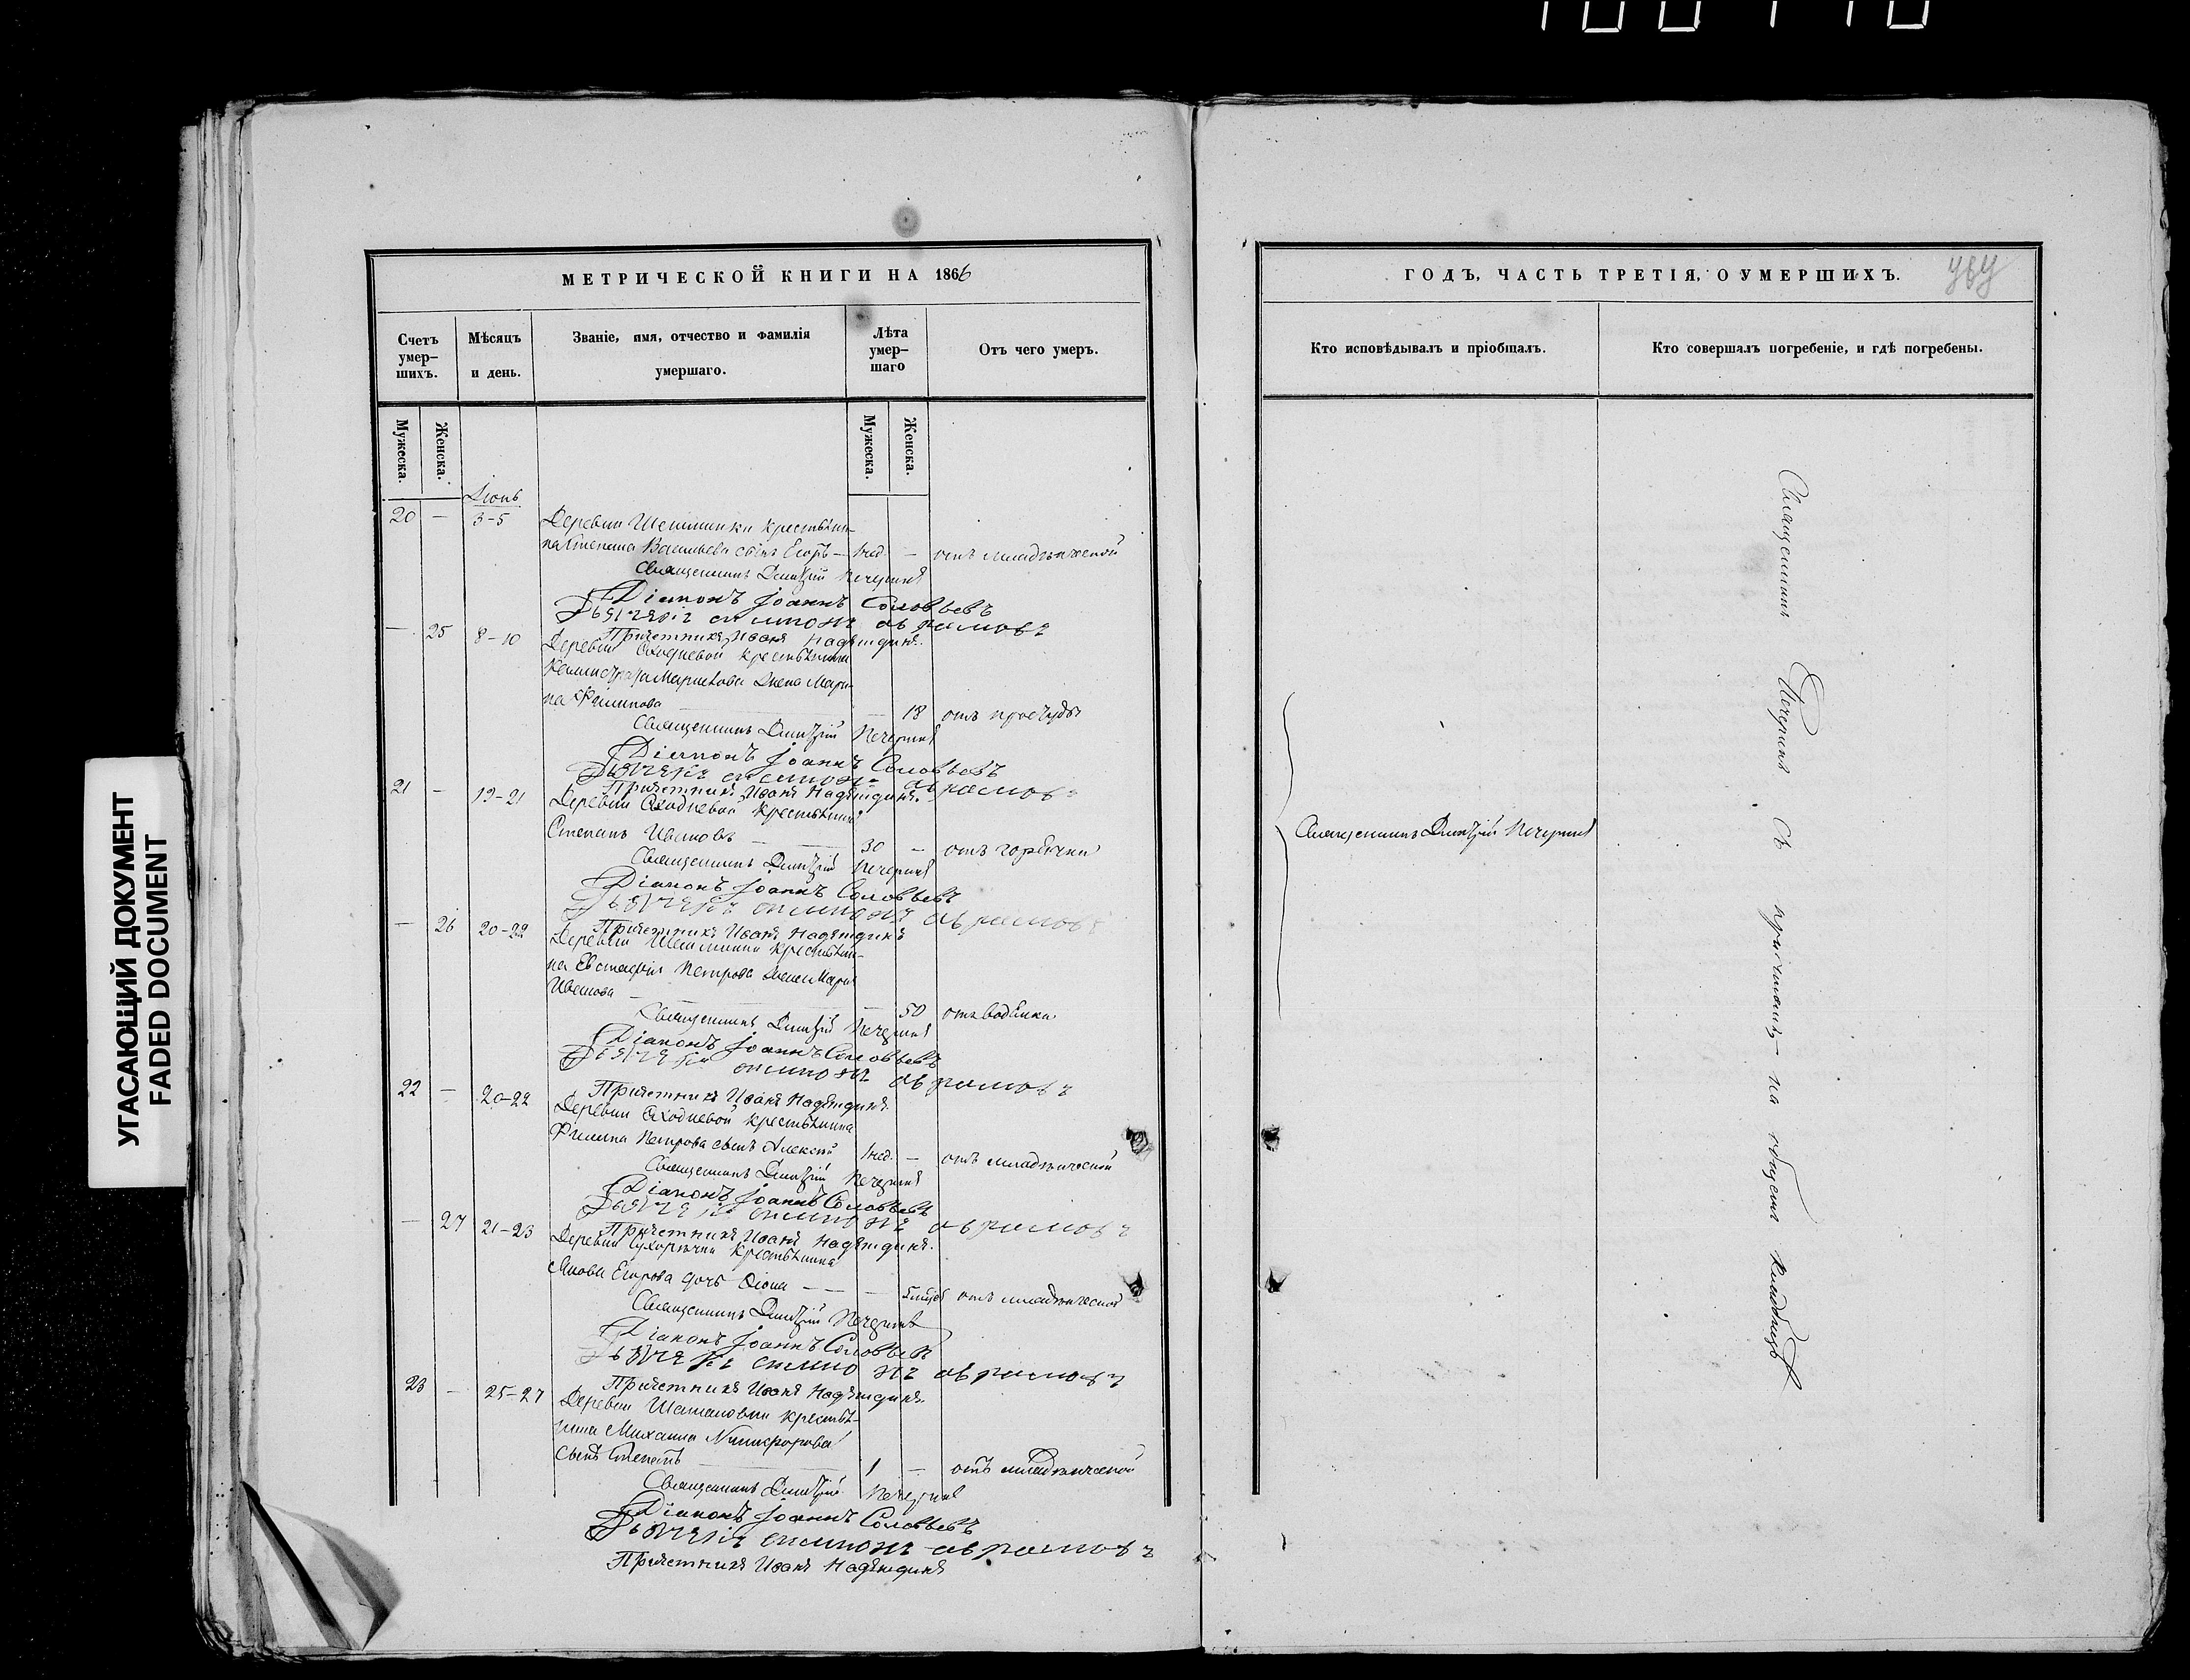 УГАСАЮЩИЙ ДОКУМЕНТ
FADED DOCUMENT
МЕТРИЧЕСКОЙ КНИГИ НА 1866
Счетъ умер-шихъ.
Мѣсяцъ и день.
Званіе, имя, отчество и фамилія умершаго.
Лѣта умер-шаго
Отъ чего умеръ.
Мужеска.
Женска.
Мужеска.
Женска.
Іюнь
20 — 3-5 Деревни крестьяни-
на Степана Васильева сынъ Егоръ — 1 нед. — отъ младенческой
Священникъ Димитрій Печеринъ
Діаконъ Іоаннъ Соловьевъ
Дьячекъ Симионъ Аврамовъ
Причетникъ Иванъ Надеждинъ.
— 25 8-10 Деревни Сходневой крестьянина
жена Мари-
на Филипова — 18 отъ простуды
Священникъ Димитрій Печеринъ
Діаконъ Іоаннъ Соловьевъ
Дьячекъ Симионъ Аврамовъ
Причетникъ Иванъ Надеждинъ.
21 — 19-21 Деревни Сходневой крестьянинъ
Степанъ Ивановъ — 30 — отъ горячки
Священникъ Димитрій Печеринъ
Діаконъ Іоаннъ Соловьевъ
Дьячекъ Симионъ Аврамовъ
Причетникъ Иванъ Надеждинъ
— 26 20-22 Деревни крестьяни-
на Евстафія Петрова жена Марія
Иванова — — 50 отъ водянки
Священникъ Димитрій Печеринъ
Діаконъ Іоаннъ Соловьевъ
Дьячекъ Симионъ Аврамовъ
Причетникъ Иванъ Надеждинъ.
22 — 20-22 Деревни Сходневой крестьянина
Филипа Петрова сынъ Алексій 1 нед. — отъ младенческой
Священникъ Димитрій Печеринъ
Діаконъ Іоаннъ Соловьевъ
Дьячекъ Симионъ Аврамовъ
Причетникъ Иванъ Надеждинъ.
— 27 21-23 Деревни крестьянина
Якова Егорова дочь — — отъ младенческой
Священникъ Димитрій Печеринъ
Діаконъ Іоаннъ Соловьевъ
Дьячекъ Симионъ Аврамовъ
Причетникъ Иванъ Надеждинъ.
23 — 25-27 Деревни крестья-
нина Михаила Никифорова
сынъ Степанъ 1 — отъ младенческой
Священникъ Димитрій Печеринъ
Діаконъ Іоаннъ Соловьевъ
Дьячекъ Симионъ Аврамовъ
Причетникъ Иванъ Надеждинъ
ГОДЪ, ЧАСТЬ ТРЕТІЯ, О УМЕРШИХЪ.
Кто исповѣдывалъ и пріобщалъ.
Кто совершалъ погребеніе, и гдѣ погребены.
Священникъ Димитрій Печеринъ
Священникъ Печеринъ съ причтомъ — на общемъ кладбищѣ